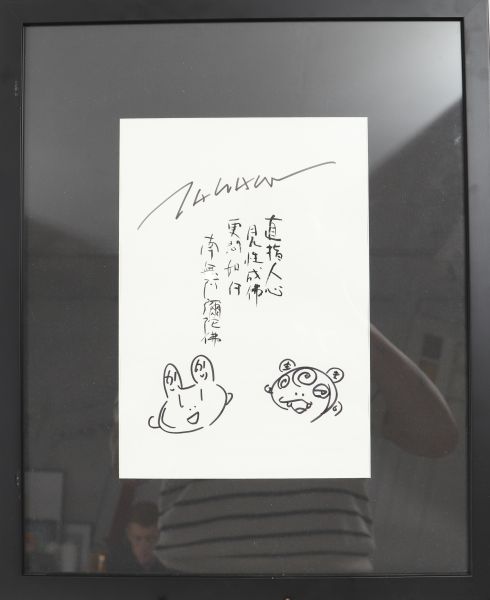 直指人心
見性成佛
更問如何
南無阿彌陀佛
かい
かい
き
き